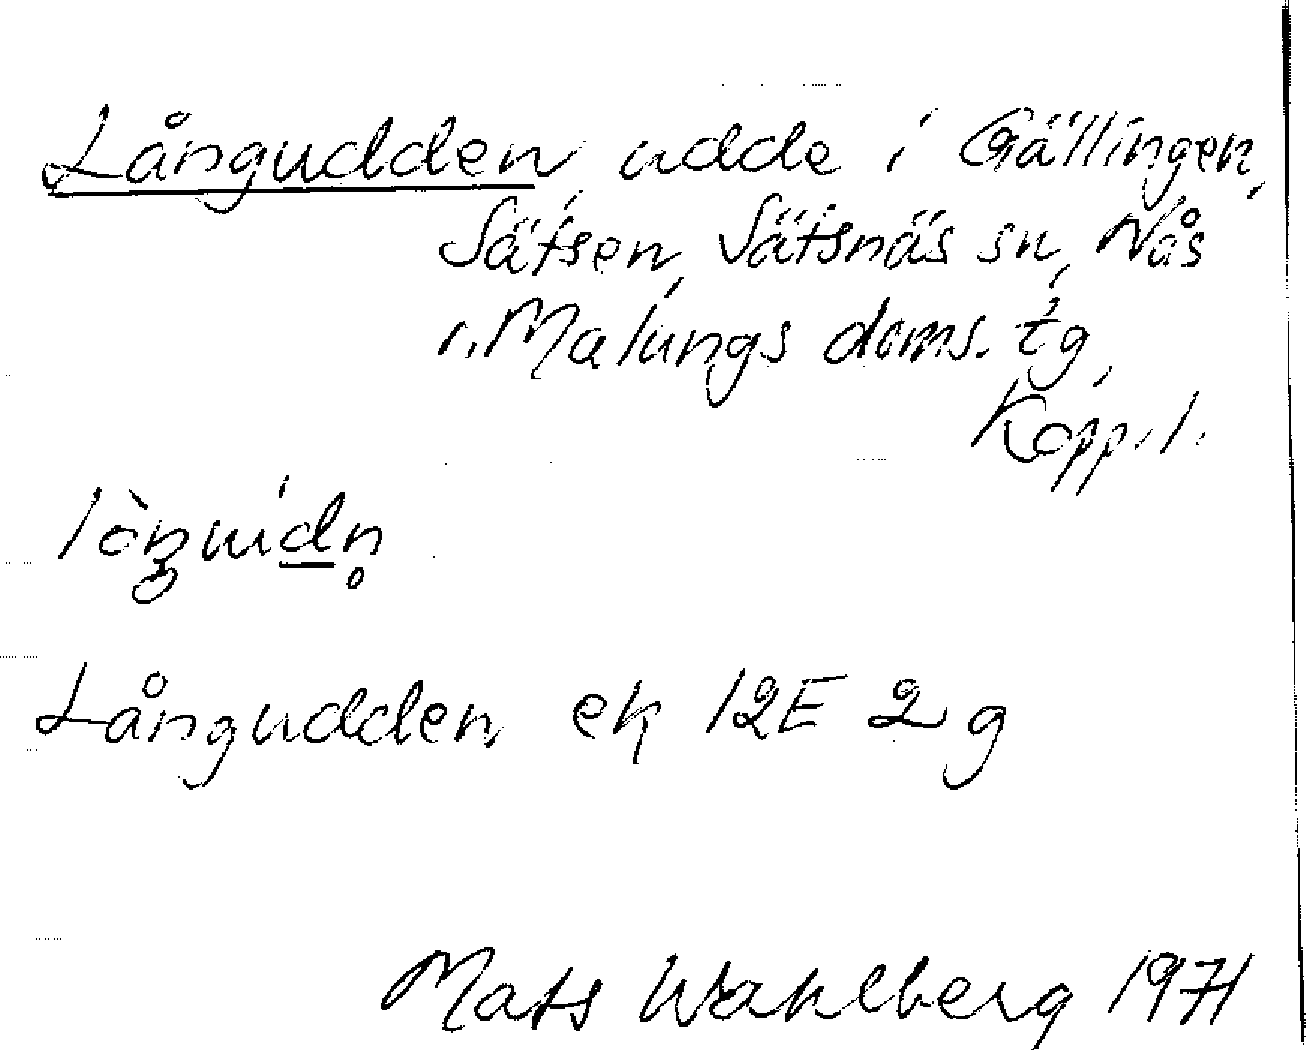 Långudden, udde i Gällingen,
Sätsen, Sätsnäs sn, Nås
o. Malungs doms. tg,
Kopp. l.
Långudden ek 12E 2g
Mats Wahlberg 1971